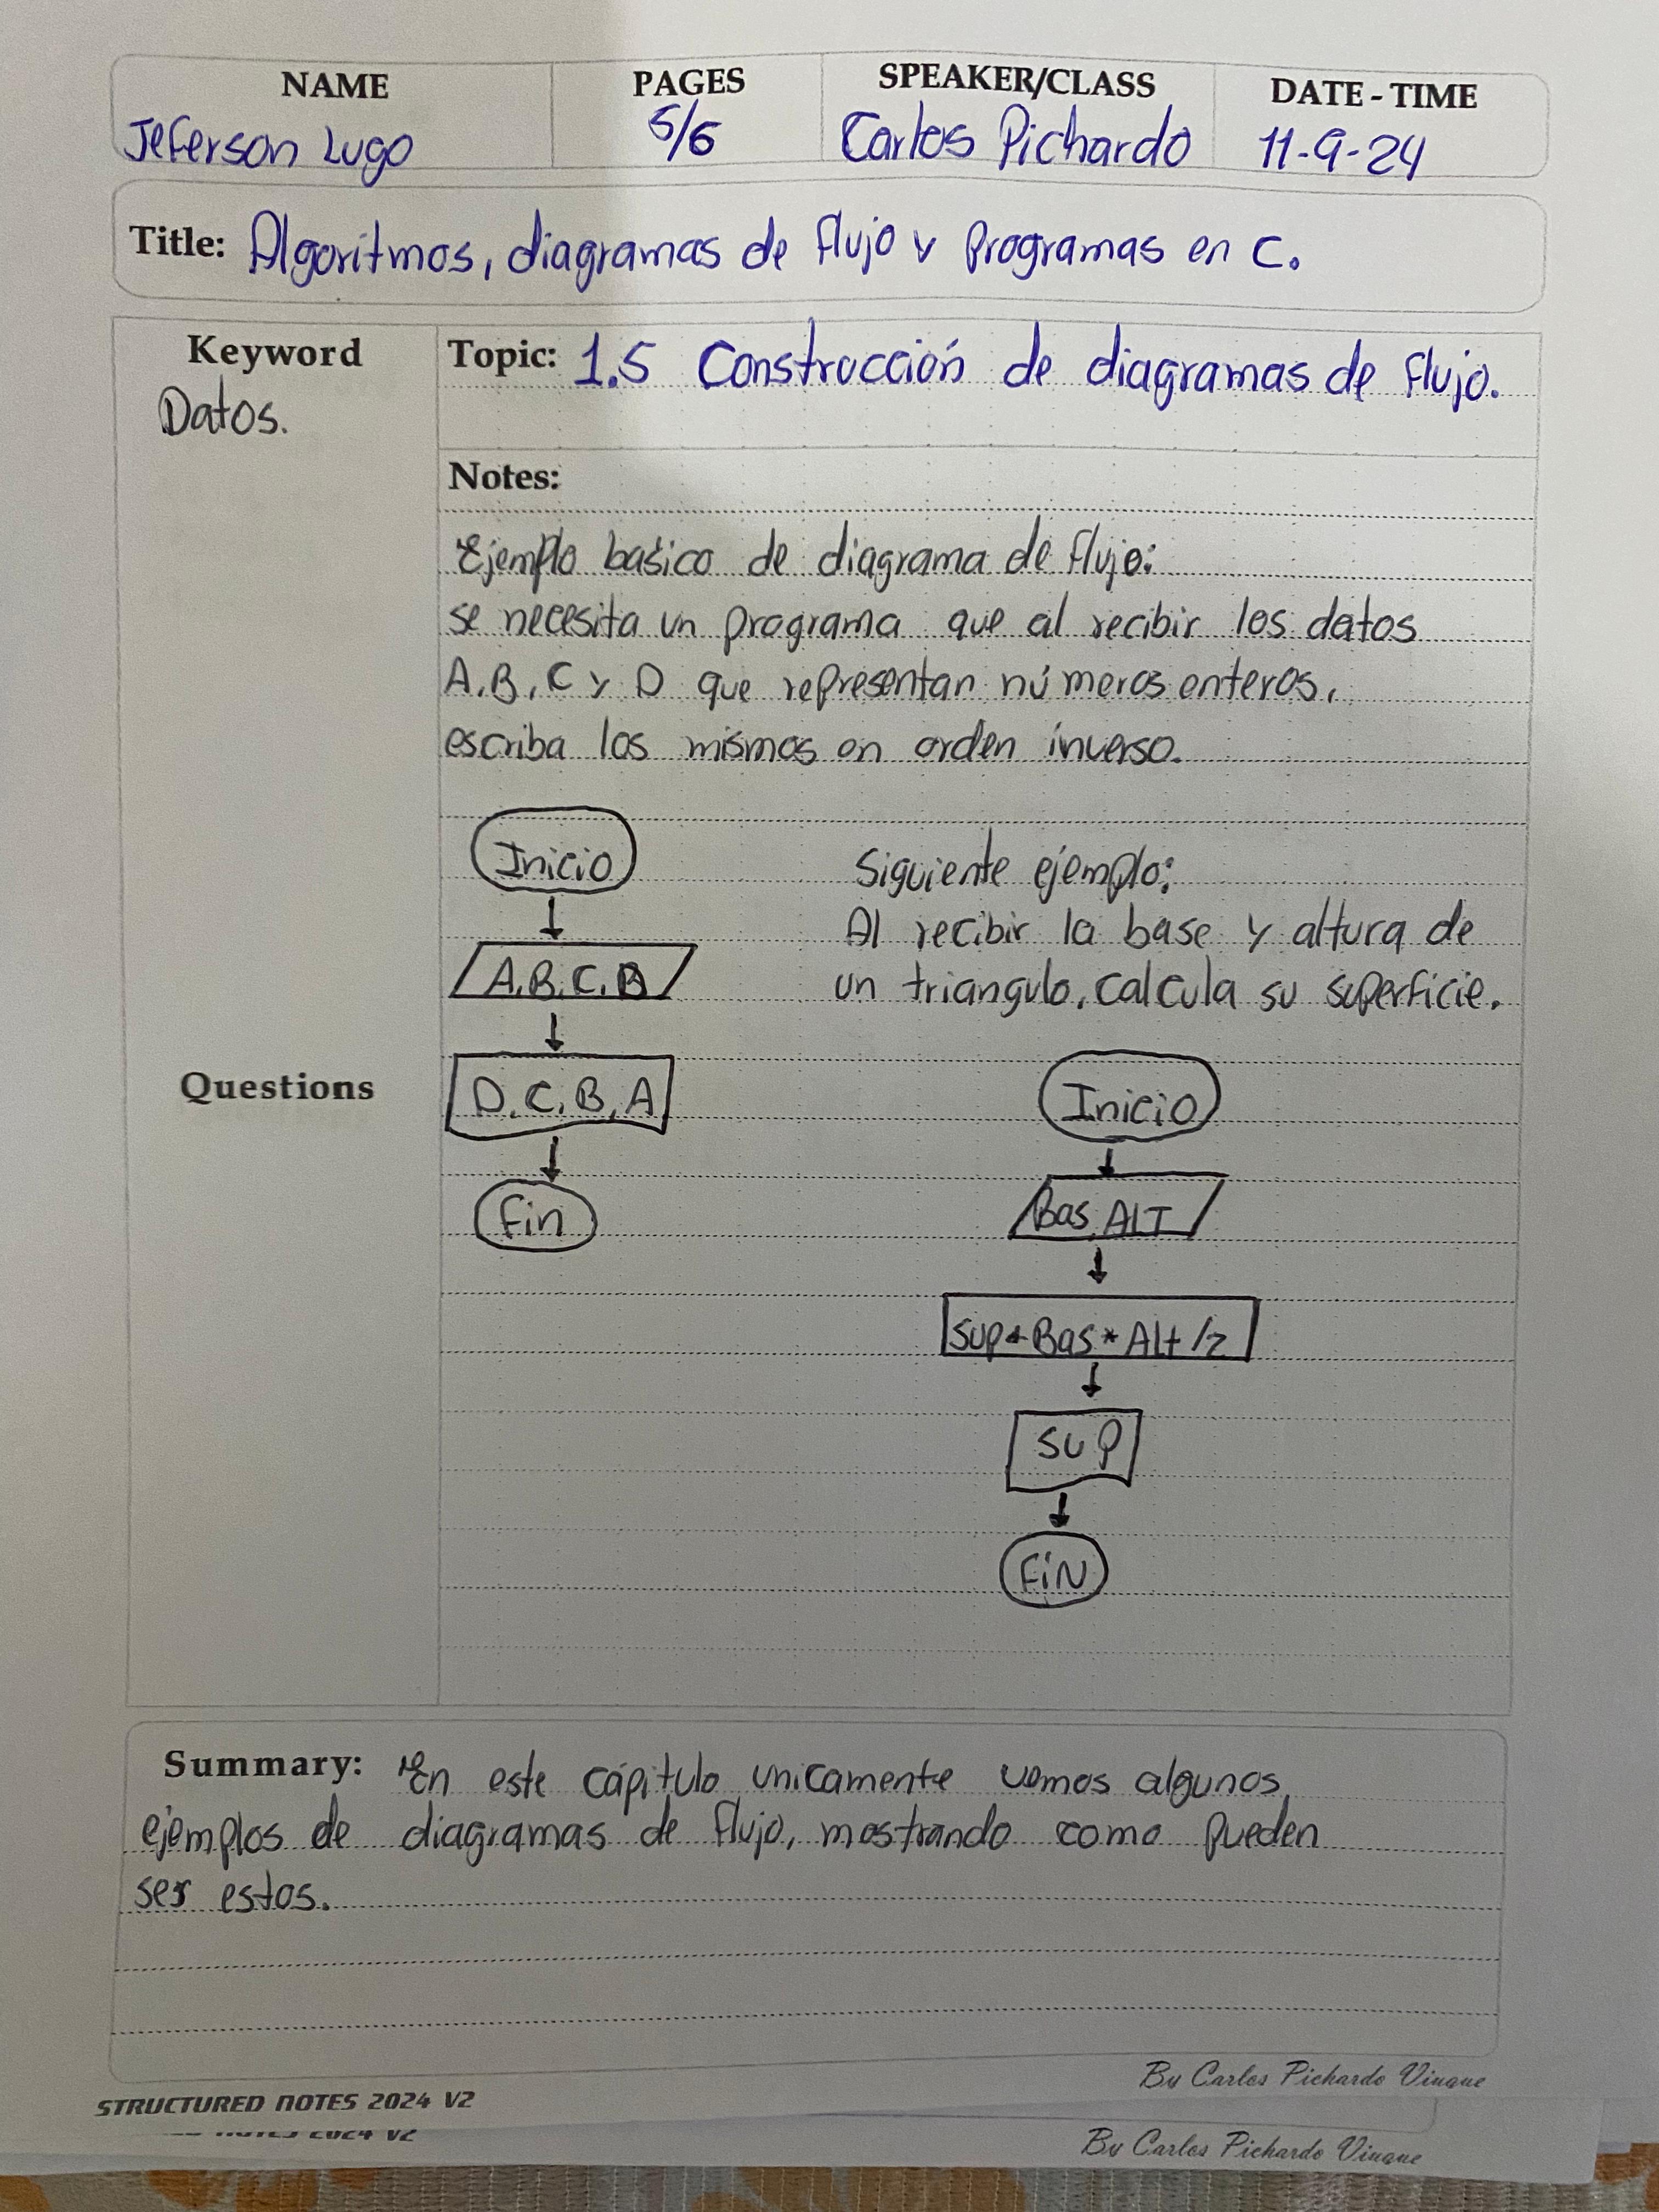 NAME
PAGES
SPEAKER/CLASS
DATE - TIME
Jeferson Lugo
5/6
Carlos Pichardo
11-9-24
Title: Algoritmos, diagramas de flujo y programas en C.
Keyword
Datos.
Topic: 1.5 Construcción de diagramas de flujo.
Notes:
Ejemplo basico de diagrama de flujo:
se necesita un programa que al recibir los datos
A, B, C y D que representan números enteros,
escriba los mismos en orden inverso.
Inicio
A, B, C, D
D, C, B, A
Fin
Siguiente ejemplo:
Al recibir la base y altura de
un triangulo, calcula su superficie.
Inicio
Bas, ALT
Sup←Bas * Alt /2
SUP
FiN
Questions
Summary: En este cápitulo unicamente vemos algunos
ejemplos de diagramas de flujo, mostrando como pueden
ser estos.
By Carlos Pichardo Viuque
STRUCTURED NOTES 2024 V2
NOTES 2024 V2
By Carlos Pichardo Viuque